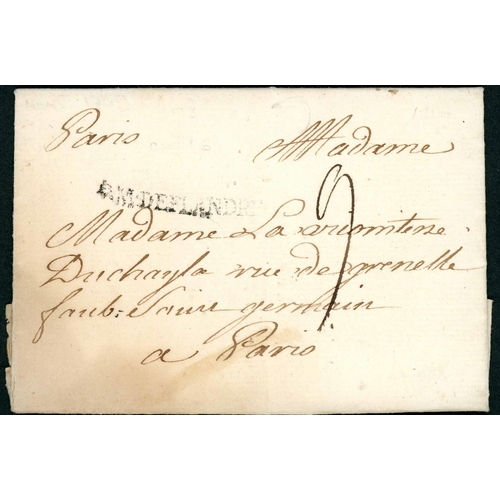 Paris
Madame
9
A.M.DEFLANDRE
Madame La vicomtesse
Duchayla rue de grenelle
faub: Saint germain
a Paris